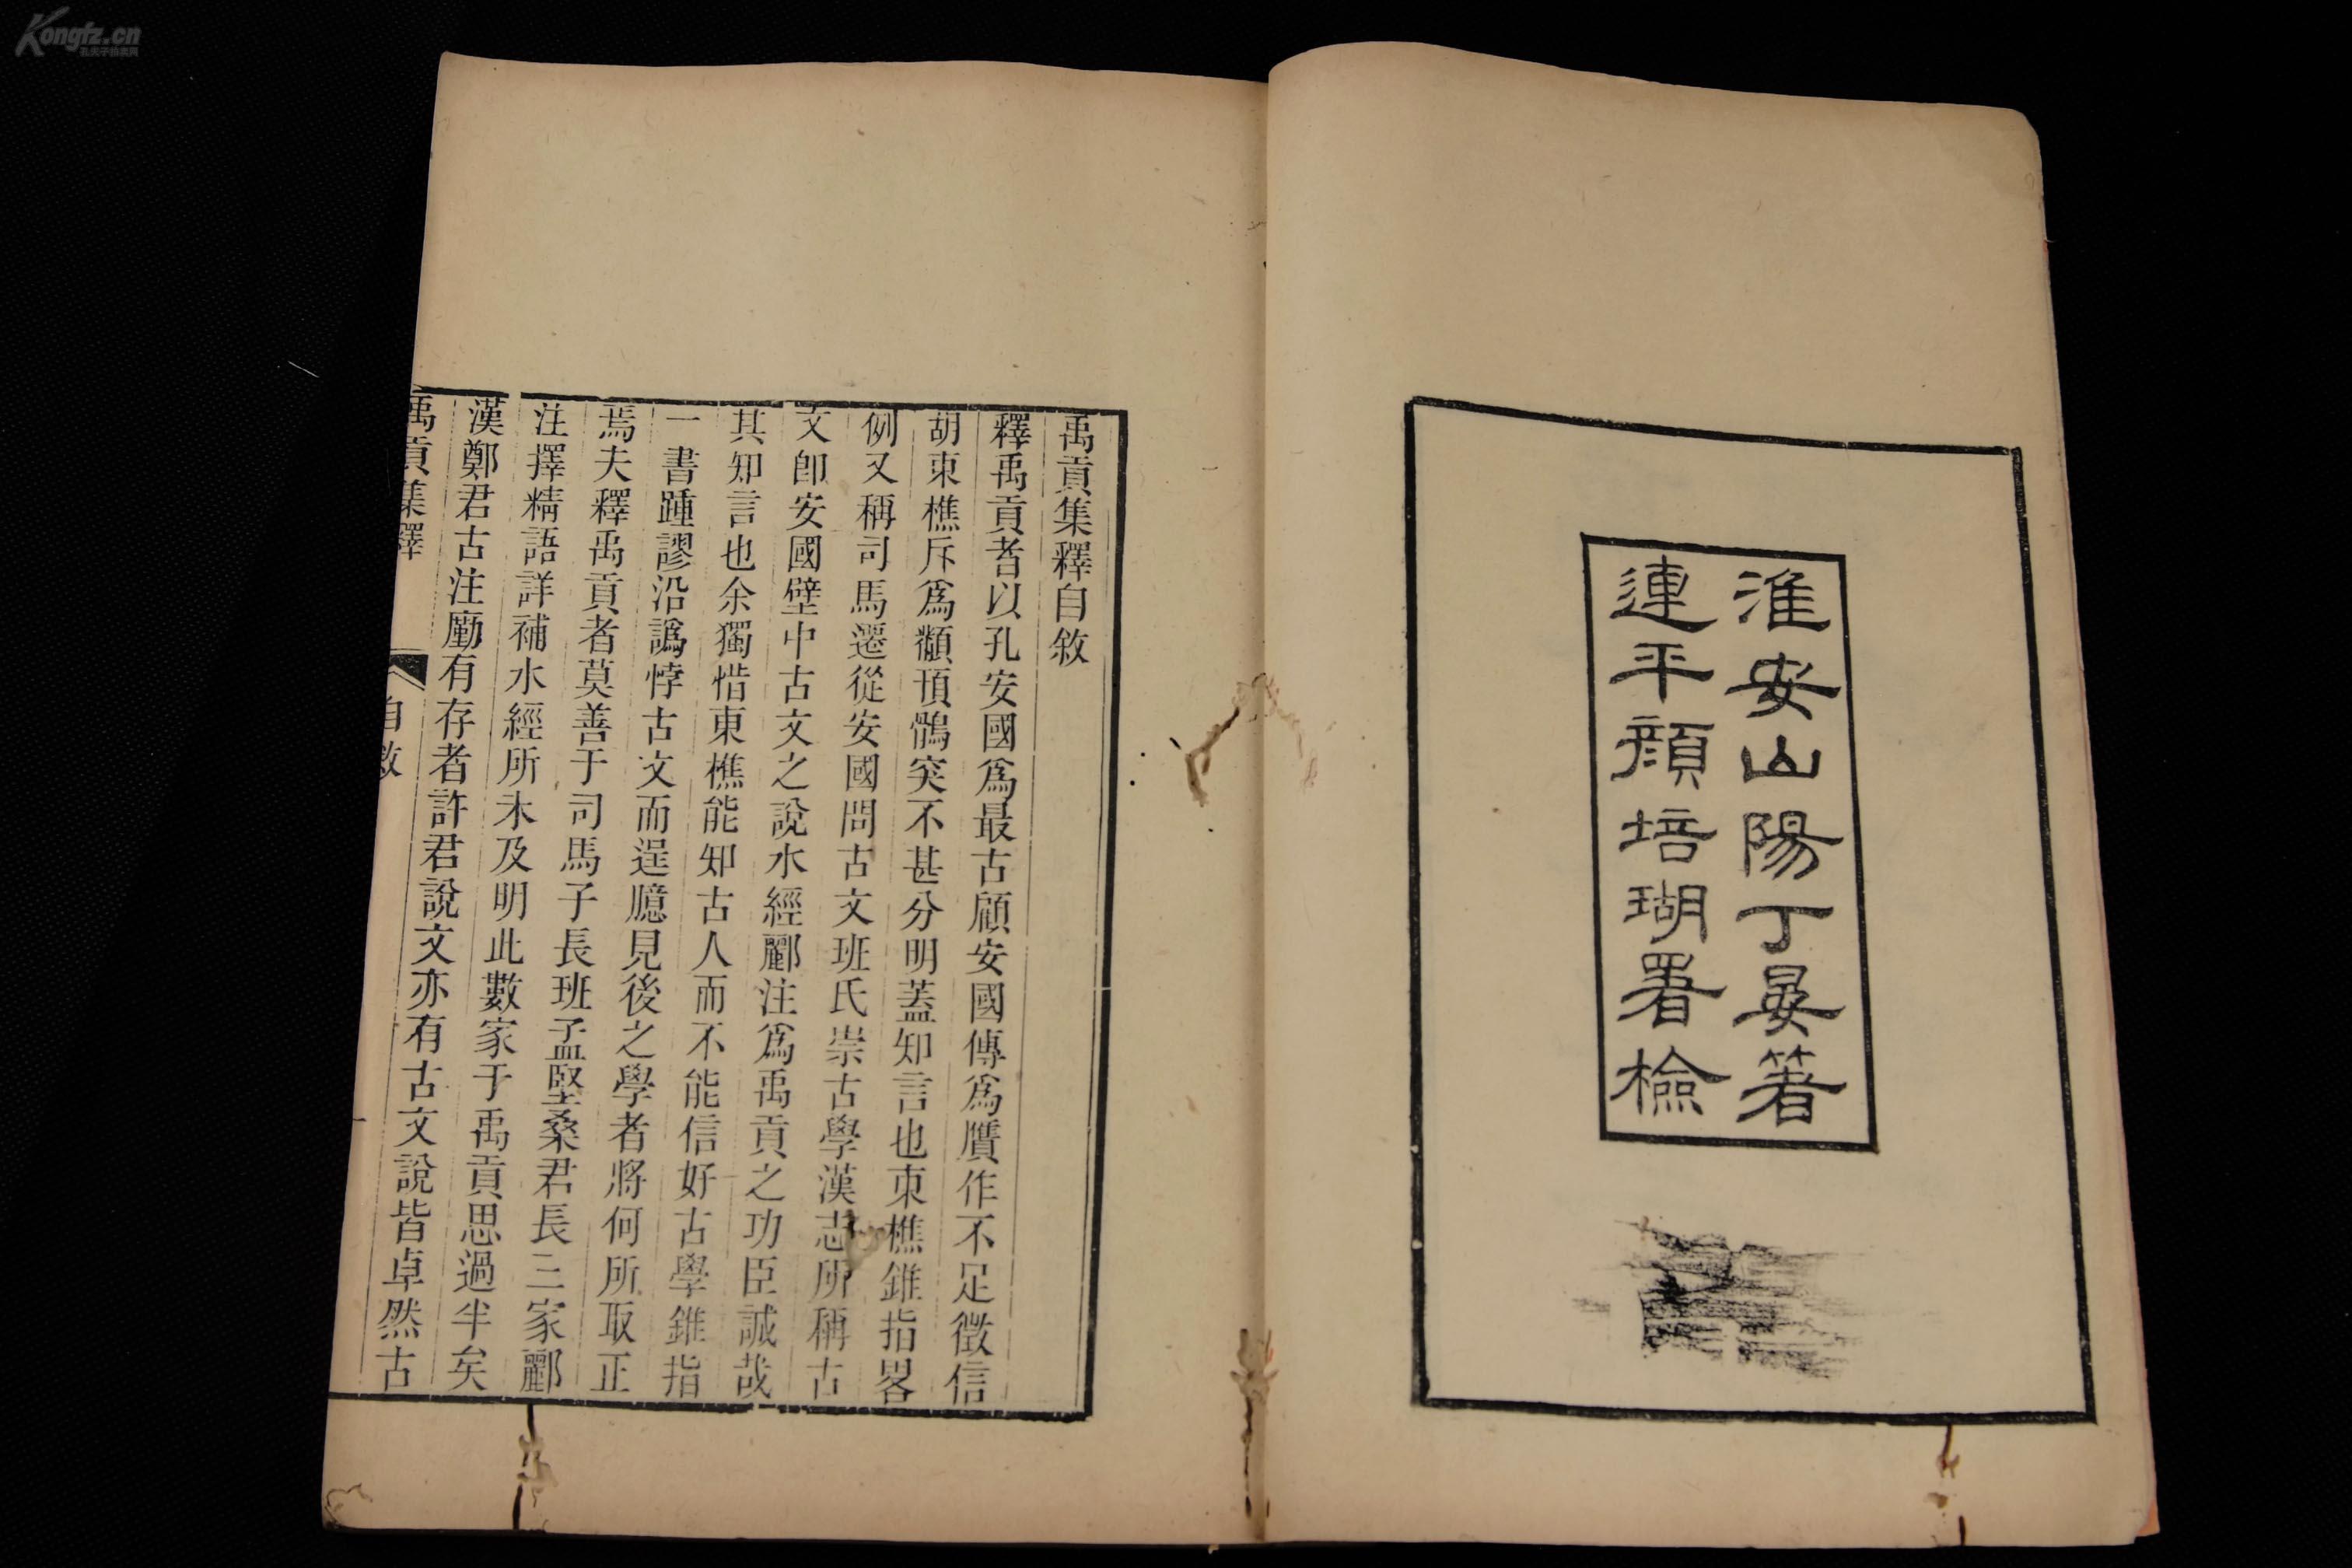 Kongfz.cn
孔夫子拍卖网
淮安山陽丁晏著
連平顏培瑚署檢
禹貢集釋自敘
釋禹貢者以孔安國爲最古顧安國傳爲贋作不足徵信
胡東樵斥爲顢頇鶻突不甚分明蓋知言也東樵錐指畧
例又稱司馬遷從安國問古文班氏崇古學漢志所稱古
文卽安國壁中古文之說水經酈注爲禹貢之功臣誠哉
其知言也余獨惜東樵能知古人而不能信好古學錐指
一書踵謬沿譌悖古文而逞臆見後之學者將何所取正
焉夫釋禹貢者莫善于司馬子長班孟堅桑君長三家酈
注擇精語詳補水經所未及明此數家于禹貢思過半矣
漢鄭君古注廑有存者許君說文亦有古文說皆卓然古
禹貢集釋
自敘